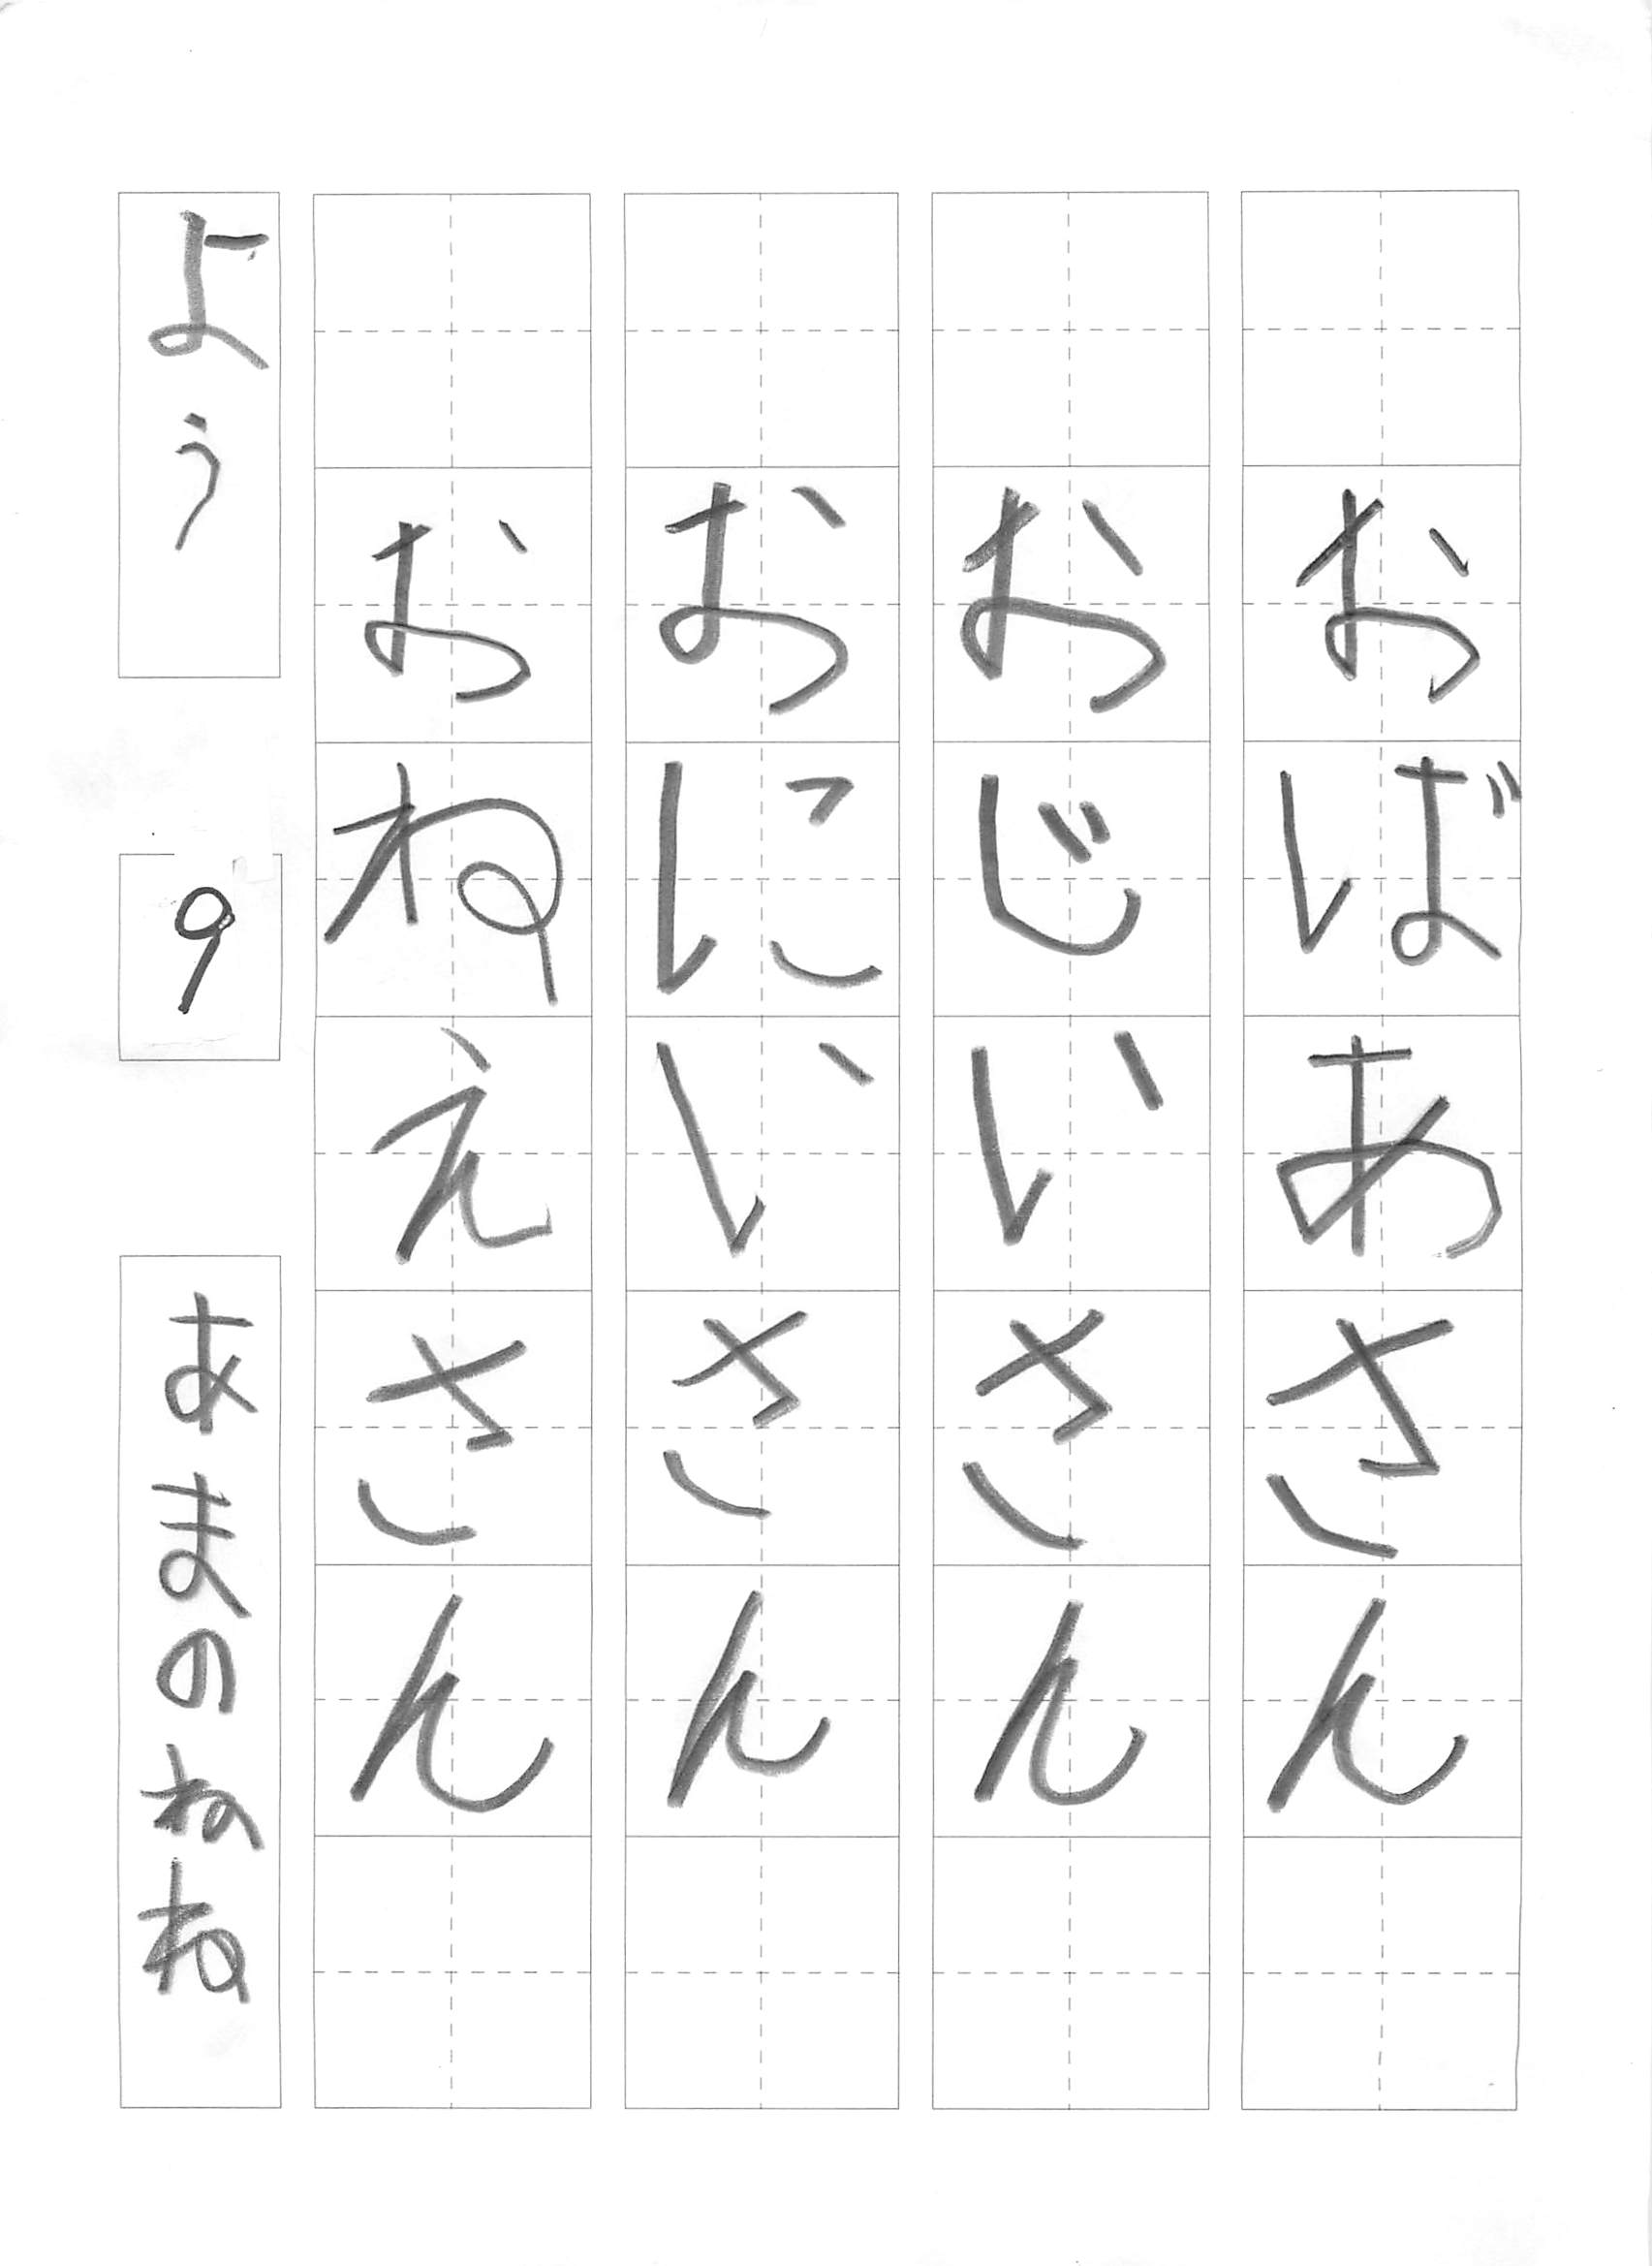 おばあさん
おじいさん
おにいさん
おねえさん
よう
9
あまのねね